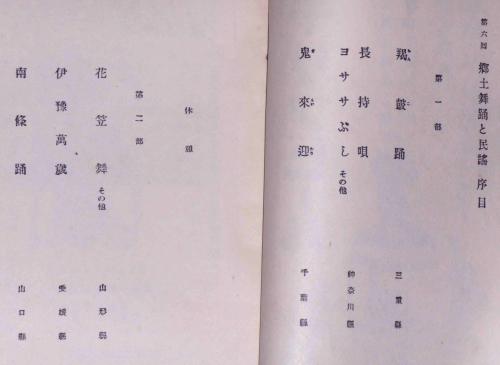 第六回 郷土舞踊と民謡 序目
第一部
羯皷踊 三重縣
長持唄
ヨササぶし その他 神奈川縣
鬼來迎 千葉縣
休憩
第二部
花笠舞 その他 山形縣
伊豫萬歳 愛媛縣
南條踊 山口縣